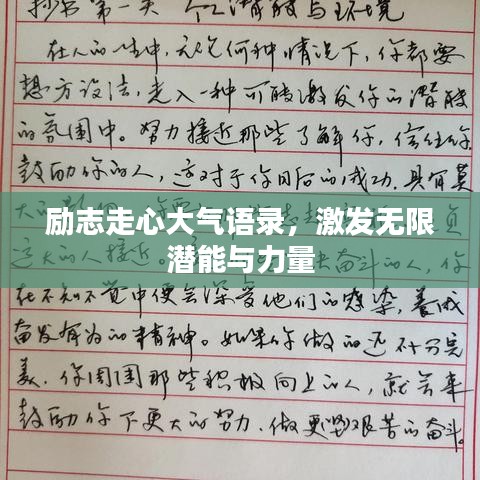 抄书第一关 个人潜能与环境
在人的一生中，无论何种情况下，你都要
想方设法，走入一种可能激发你的潜能
的氛围中。努力接近那些了解你，信任你，
鼓励你的人，这对于你日后的成功，具有莫
大的
励志走心大气语录，激发无限
潜能与力量
奋斗的人，你
在不知不觉中便会深受他们的感染，养成
奋发有为的精神。如果你做的还不十分完
美，你周围那些积极向上的人，就会来
鼓励你下更大的努力，做更坚艰苦的奋斗。